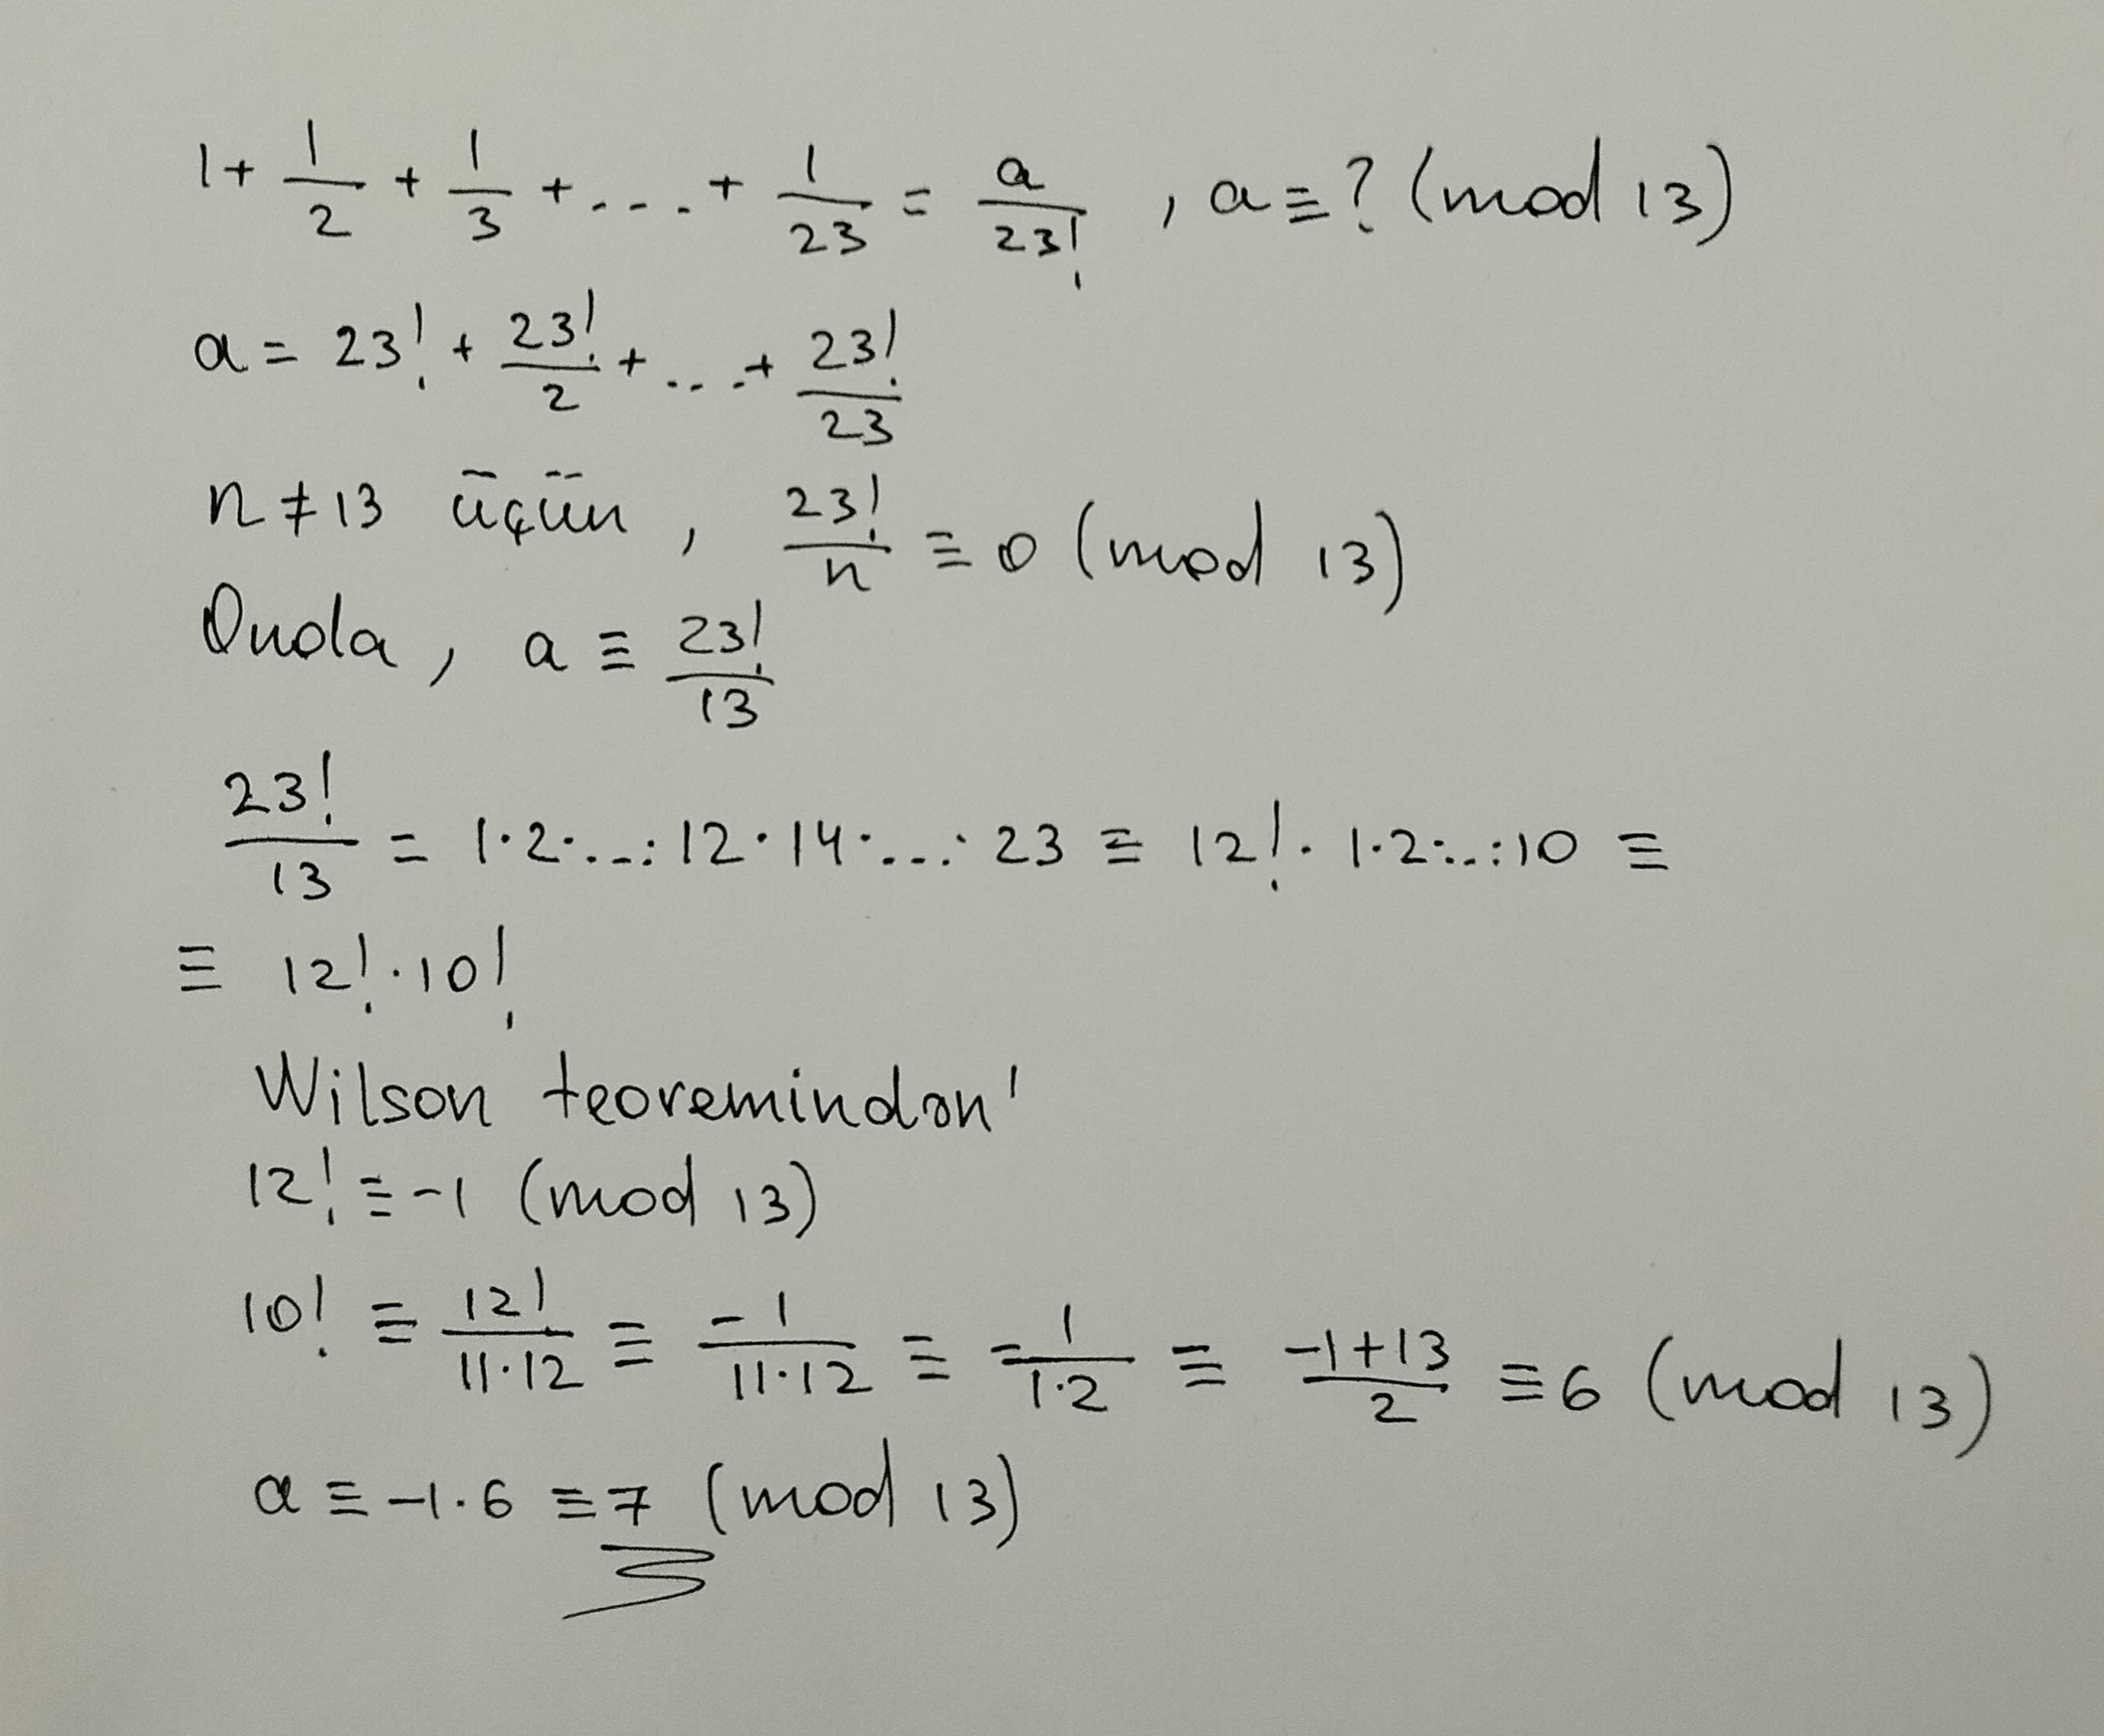 1 + 1/2 + 1/3 + ... + 1/23 = a/23! , a ≡ ? (mod 13)
a = 23! + 23!/2 + ... + 23!/23
n ≠ 13 üçün , 23!/n ≡ 0 (mod 13)
Onda , a ≡ 23!/13
23!/13 = 1·2·...·12·14·...·23 ≡ 12!·1·2·...·10 ≡
≡ 12!·10!
Wilson teoremindən!
12! ≡ -1 (mod 13)
10! ≡ 12!/11·12 ≡ -1/11·12 ≡ -1/1·2 ≡ -1+13/2 ≡ 6 (mod 13)
a ≡ -1·6 ≡ 7 (mod 13)